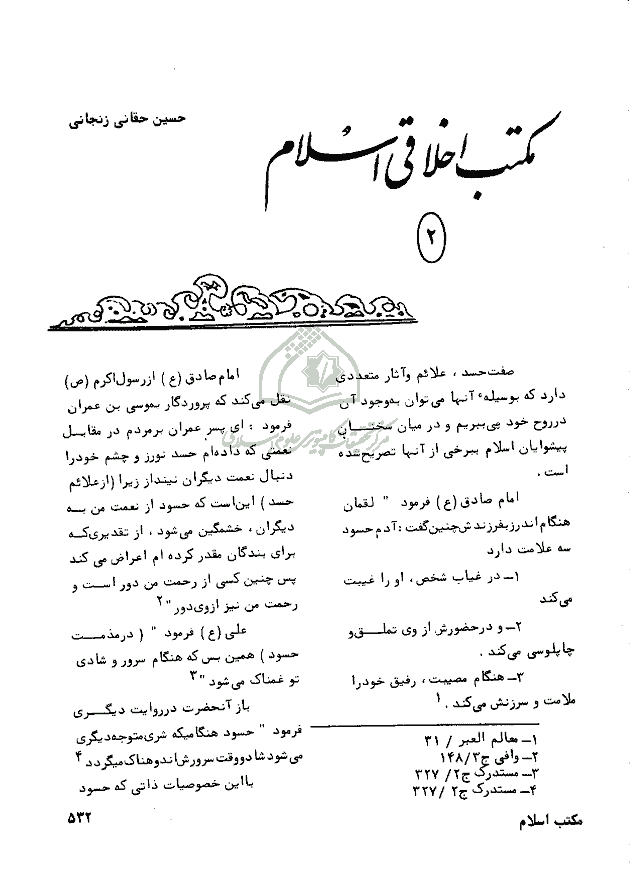 حسین حقانی زنجانی
مکتب اخلاقی اسلام
۲
صفت حسد ، علائم وآثار متعددی
دارد که بوسیلهٔ آنها می‌توان به‌وجود آن
درروح خود می‌بریم و در میان سخنان
پیشوایان اسلام ببرخی از آنها تصریح‌شده
است .
امام صادق (ع) فرمود " لقمان
هنگام اندرز بفرزندش‌چنین‌گفت : آدم حسود
سه علامت دارد
۱ـ در غیاب شخص ، او را غیبت
می‌کند
۲ـ و درحضورش از وی تملق‌و
چاپلوسی می‌کند .
۳ـ هنگام مصیبت ، رفیق خودرا
ملامت و سرزنش می‌کند . ۱
۱ـ معالم العبر / ۳۱
۲ـ وافی ج۳/ ۱۴۸
۳ـ مستدرک ج۲/ ۳۲۷
۴ـ مستدرک ج۲ /۳۲۷
امام صادق (ع) ازرسول‌اکرم (ص)
نقل می‌کند که پروردگار به‌موسی بن عمران
فرمود : ای پسر عمران برمردم در مقابل
نعمتی که داده‌ام حسد نورز و چشم خودرا
دنبال نعمت دیگران نینداز زیرا (ازعلائم
حسد) این‌است که حسود از نعمت من به
دیگران ، خشمگین می‌شود ، از تقدیری‌که
برای بندگان مقدر کرده ام اعراض می کند
پس چنین کسی از رحمت من دور است و
رحمت من نیز ازوی‌دور " ۲
علی (ع) فرمود " ( درمذمت
حسود) همین بس که هنگام سرور و شادی
تو غمناک می‌شود " ۳
باز آنحضرت درروایت دیگری
فرمود " حسود هنگامیکه شری‌متوجه‌دیگری
می‌شود شاد و وقت سرورش اندوهناک میگردد ۴
بااین خصوصیات ذاتی که حسود
مکتب اسلام
۵۳۲